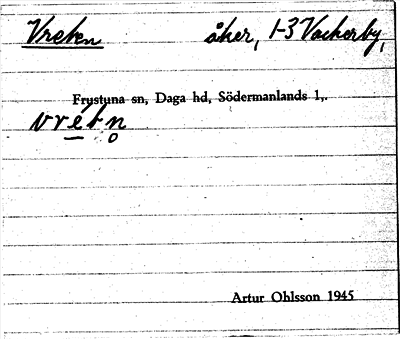 Vreten åker, 1-3 Vackerby,
Frustuna sn, Daga hd, Södermanlands l.
Artur Ohlsson 1945